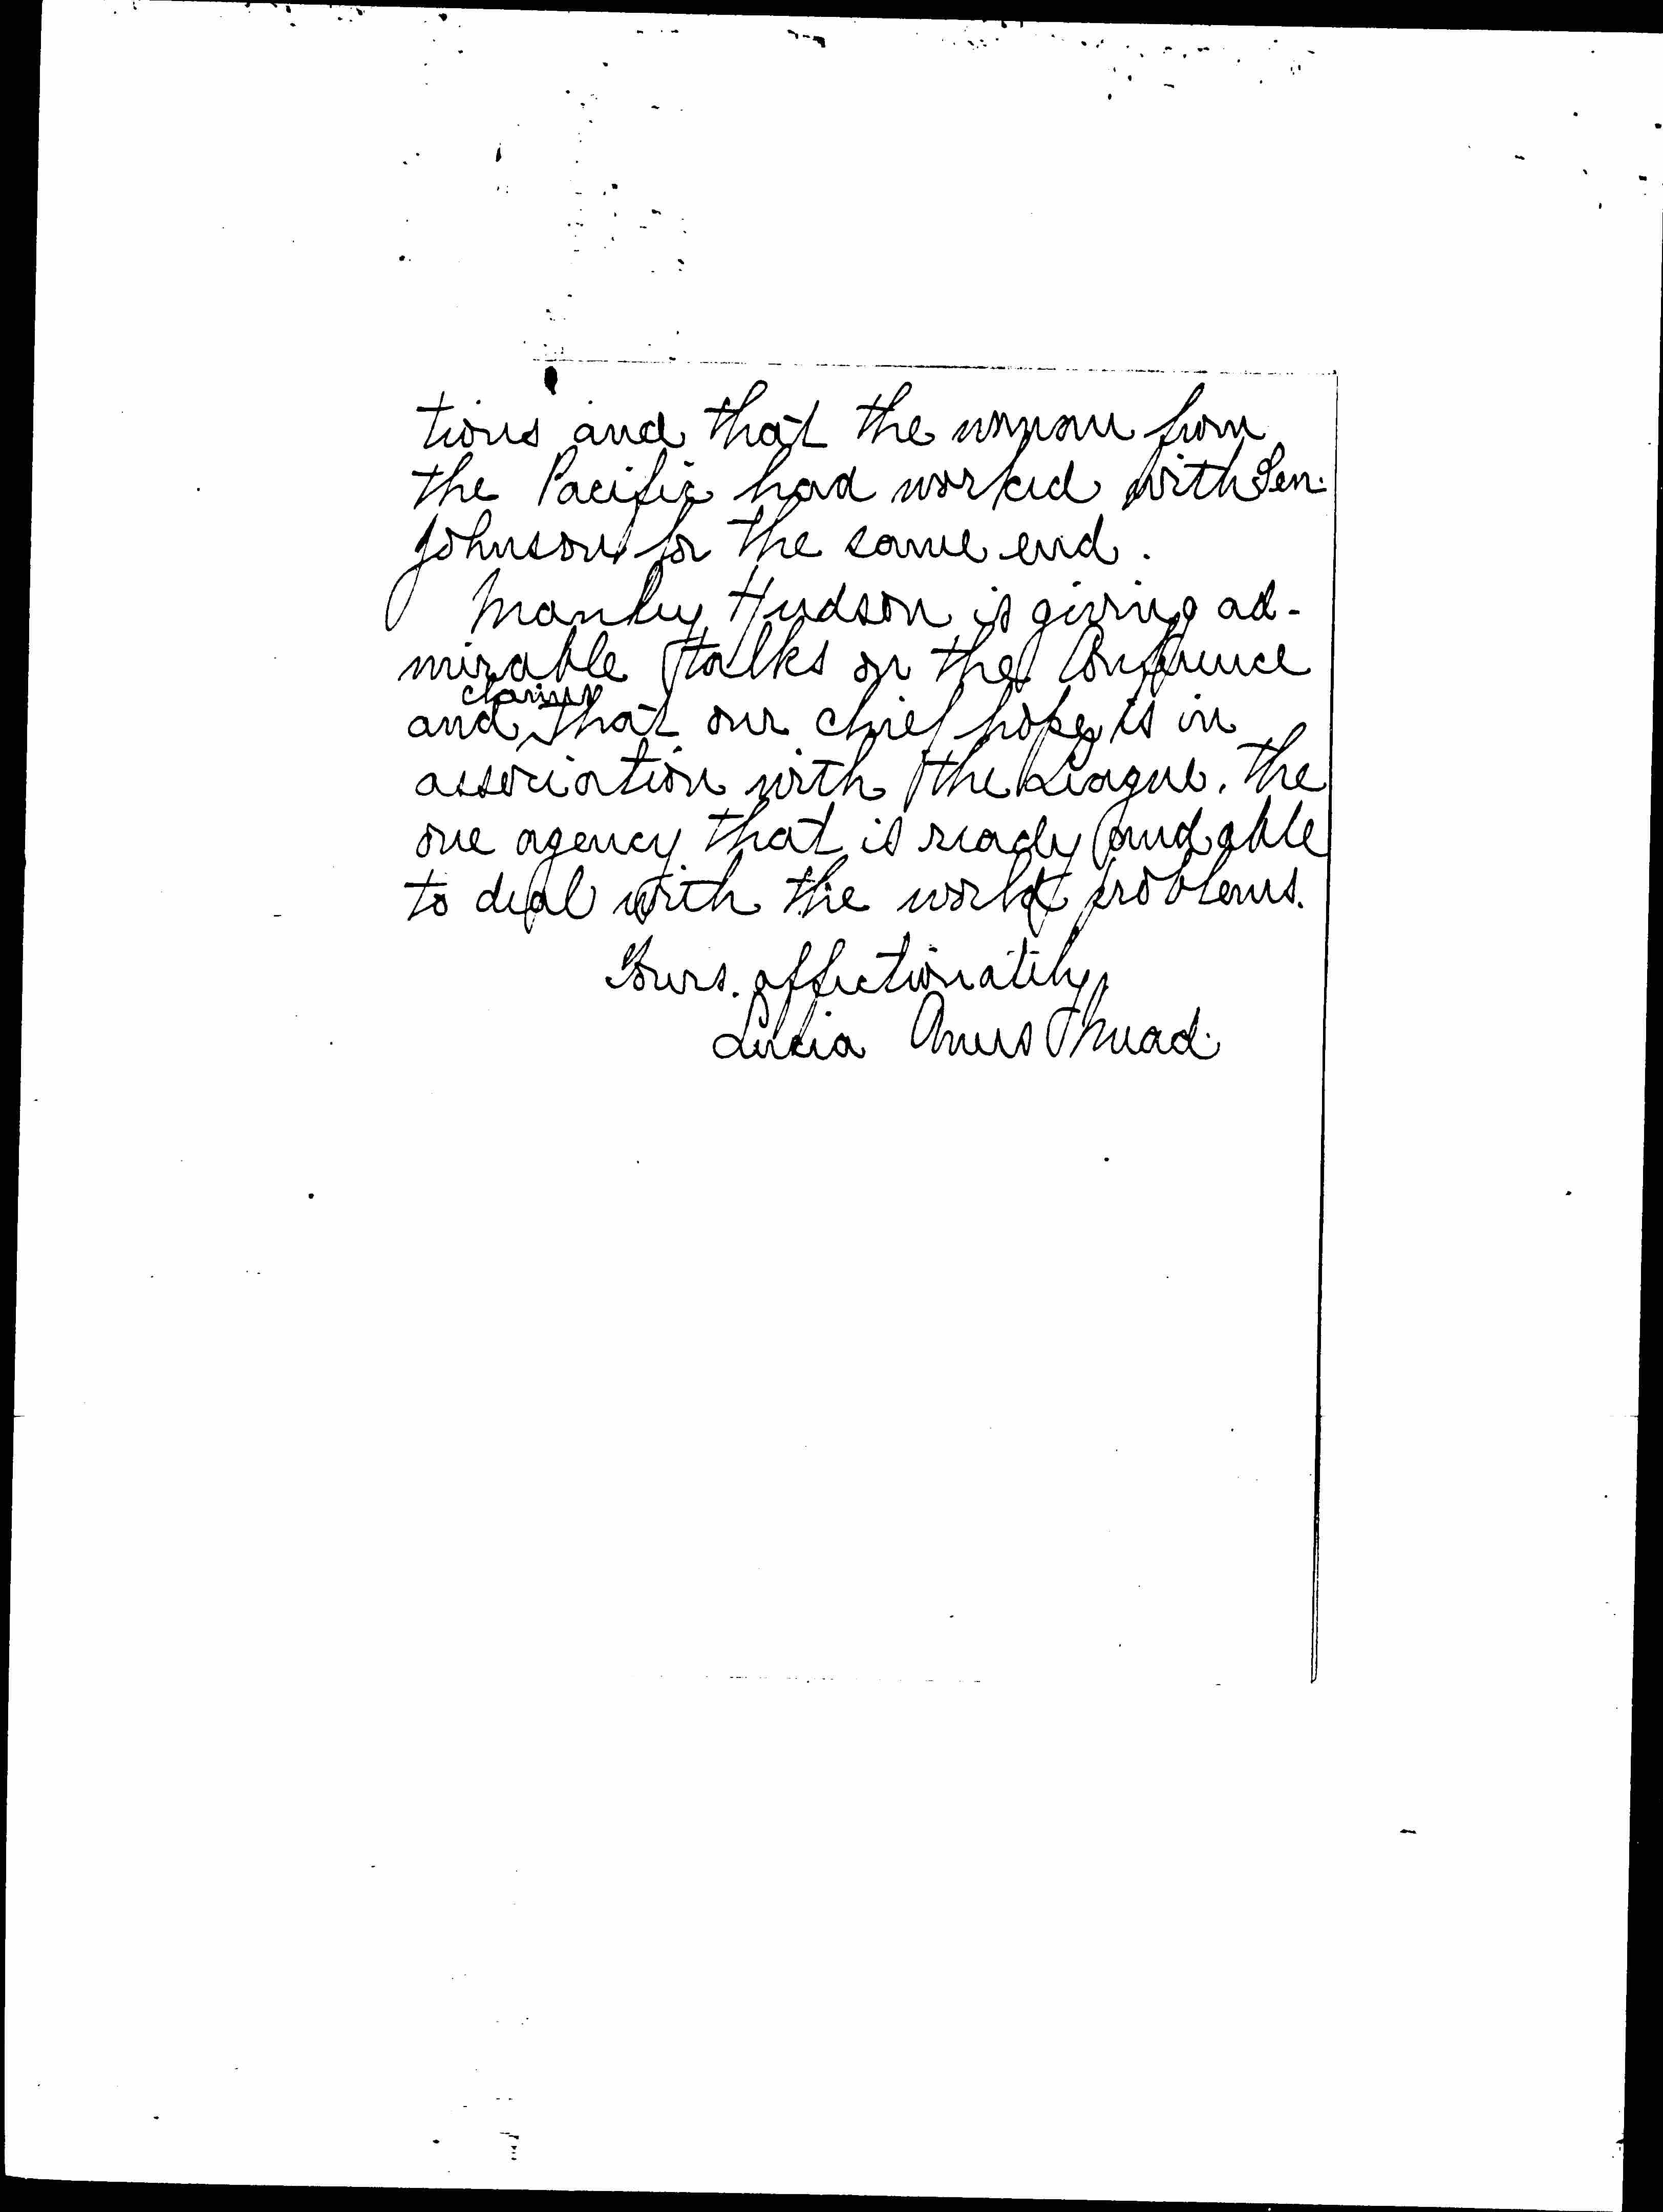 tions and that the women from
the Pacific had worked with Sen.
Johnson for the same end.
Manley Hudson is giving ad-
mirable talks on the Conference
and claims that our chief hope is in
association with the League, the
one agency that is ready and able
to deal with the world problems.
Yours affectionately,
Lucia Ames Mead.